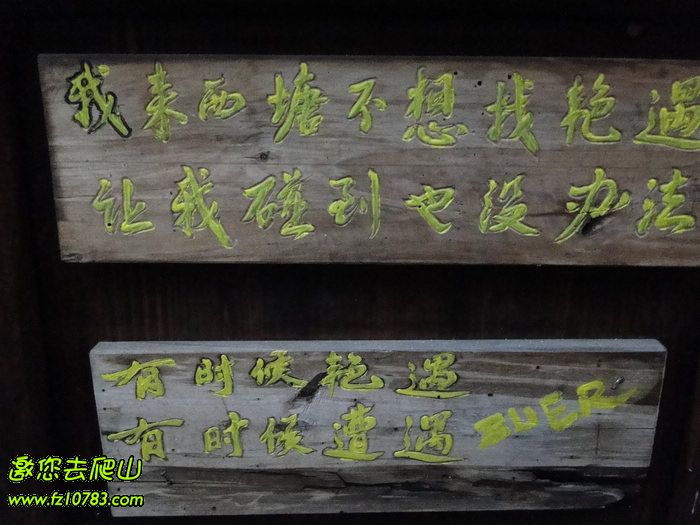 我来西塘不想找艳遇
让我碰到也没办法
有时候艳遇
有时候遭遇 BUER
邀您去爬山
www.fz10783.com